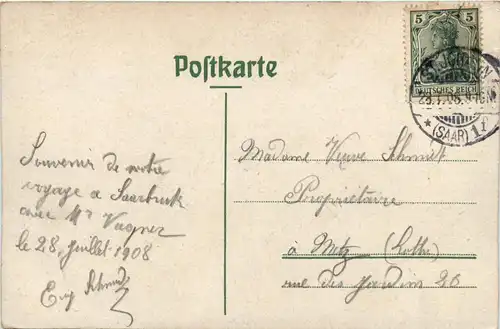 Postkarte
5 5
DEUTSCHES REICH
ST. JOHANN
(SAAR) 1
Souvenir de notre
voyage a Saarbruck
avec Mr Vagner
le 28 Juillet 1908
Madame Veuve Schmit
Propriétaire
à Metz (Lothr)
rue des Jardins 26